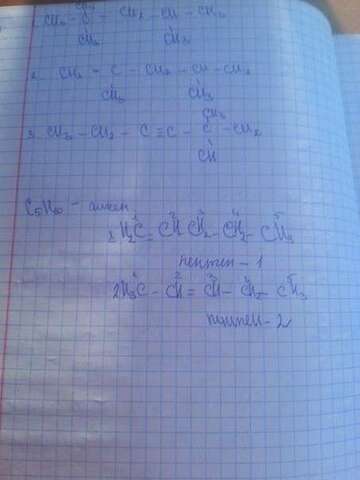 CH₃
CH₃ - C - CH₂ - CH - CH₃
CH₃ CH₃
2. CH₃ - C - CH₂ - CH - CH₃
CH₃ CH₃
CH₃
3. CH₃ - CH₂ - C ≡ C - C - CH₃
CH
C₅H₁₀ - алкен
1 H₂C = CH - CH₂ - CH₂ - CH₃
пентен - 1
2 H₃C - CH = CH - CH₂ - CH₃
пентен - 2